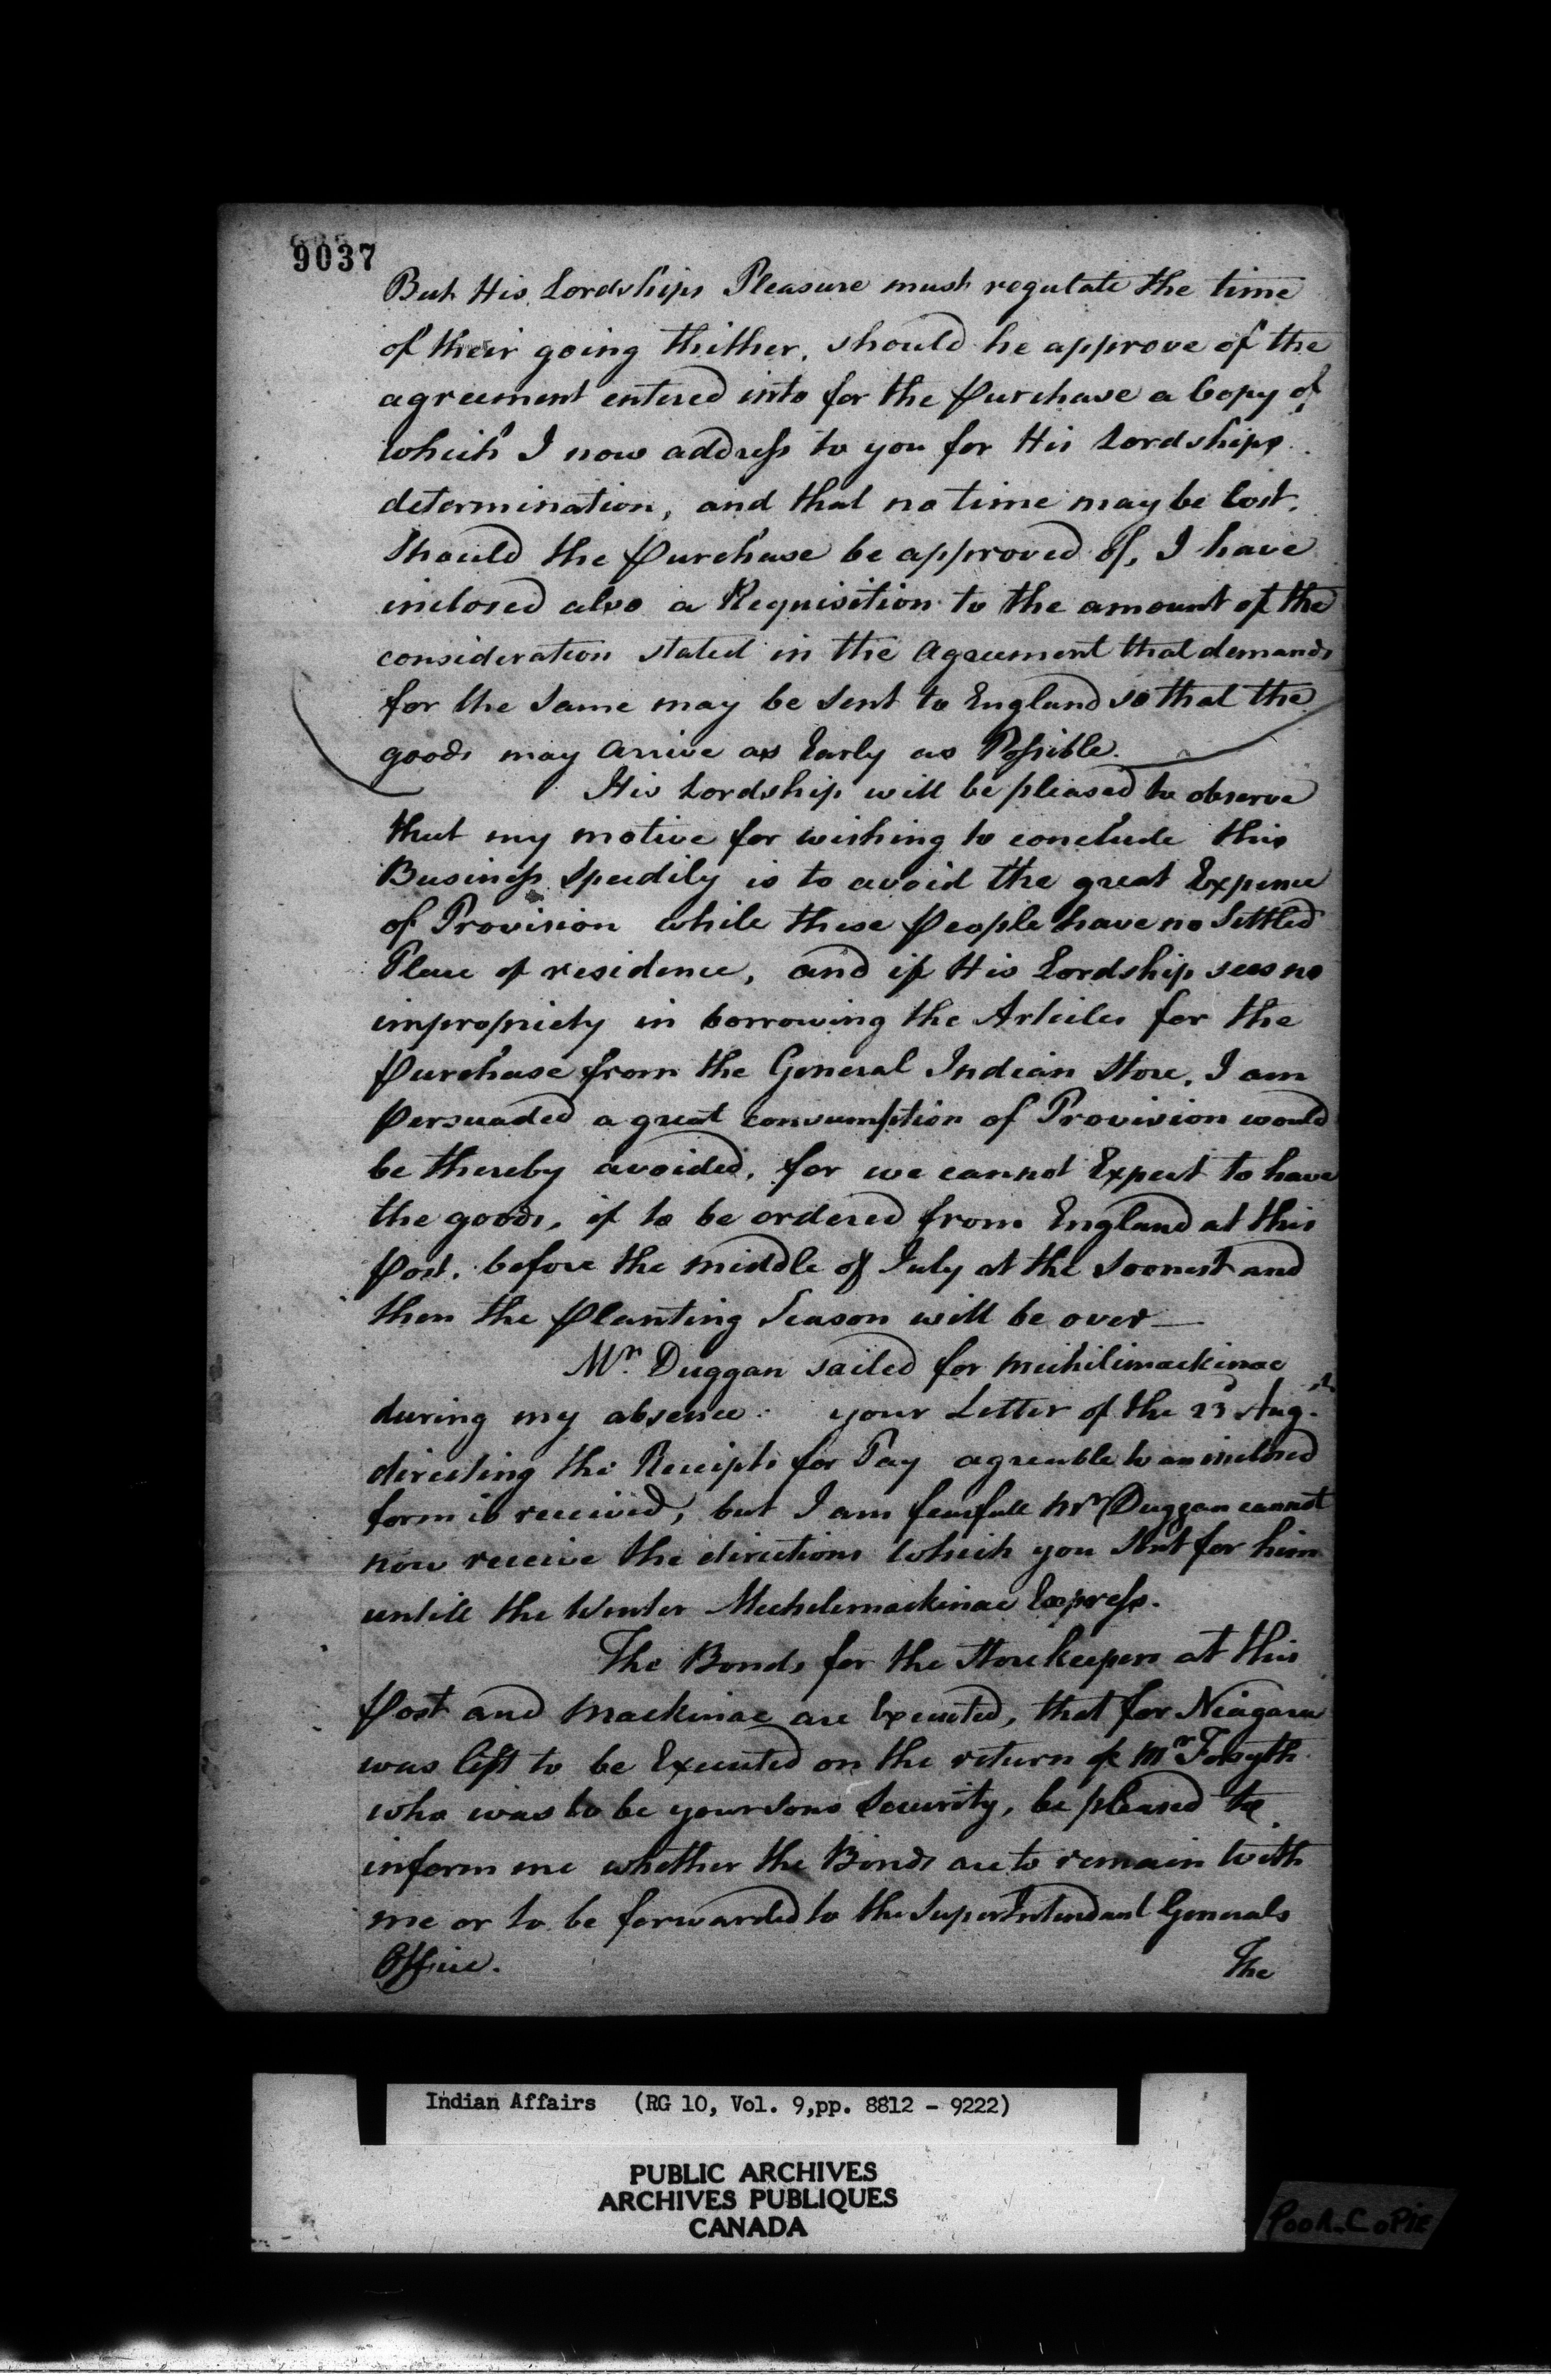 9037
But His Lordships Pleasure must regulate the time
of their going thither, should he approve of the
agreement entered into for the purchase a Copy of
which I now address to you for His Lordships
determination, and that no time may be lost,
should the purchase be approved of, I have
inclosed also a Requisition to the amount of the
consideration stated in the Agreement that demands
for the same may be sent to England so that the
goods may arrive as Early as Possible.
His Lordship will be pleased to observe
that my motive for wishing to conclude this
Business speedily is to avoid the great Expence
of Provision while these people have no Settled
Place of residence, and if His Lordship sees no
impropriety in borrowing the Articles for the
purchase from the General Indian Store, I am
persuaded a great consumption of Provision would
be thereby avoided, for we cannot Expect to have
the goods, if to be ordered from England at this
post, before the middle of July at the soonest and
then the planting Season will be over—
Mr. Duggan sailed for Michilimackinac
during my absence. your Letter of the 23d Augst.
directing the Receipts for Pay agreeable to an inclosed
form is received, but I am fearfull Mr Duggan cannot
now receive the directions which you Sent for him
untill the Winter Mechelemackinac Express.
The Bonds for the Storekeepers at this
post and Mackinac are Executed, that for Niagara
was left to be Executed on the return of Mr Forsyth
who was to be your sons Security, be pleased to
inform me whether the Bonds are to remain with
me or to be forwarded to the SuperIntendant Generals
Office. The
Indian Affairs (RG 10, Vol. 9,pp. 8812 - 9222)
PUBLIC ARCHIVES
ARCHIVES PUBLIQUES
CANADA
POOR COPIE